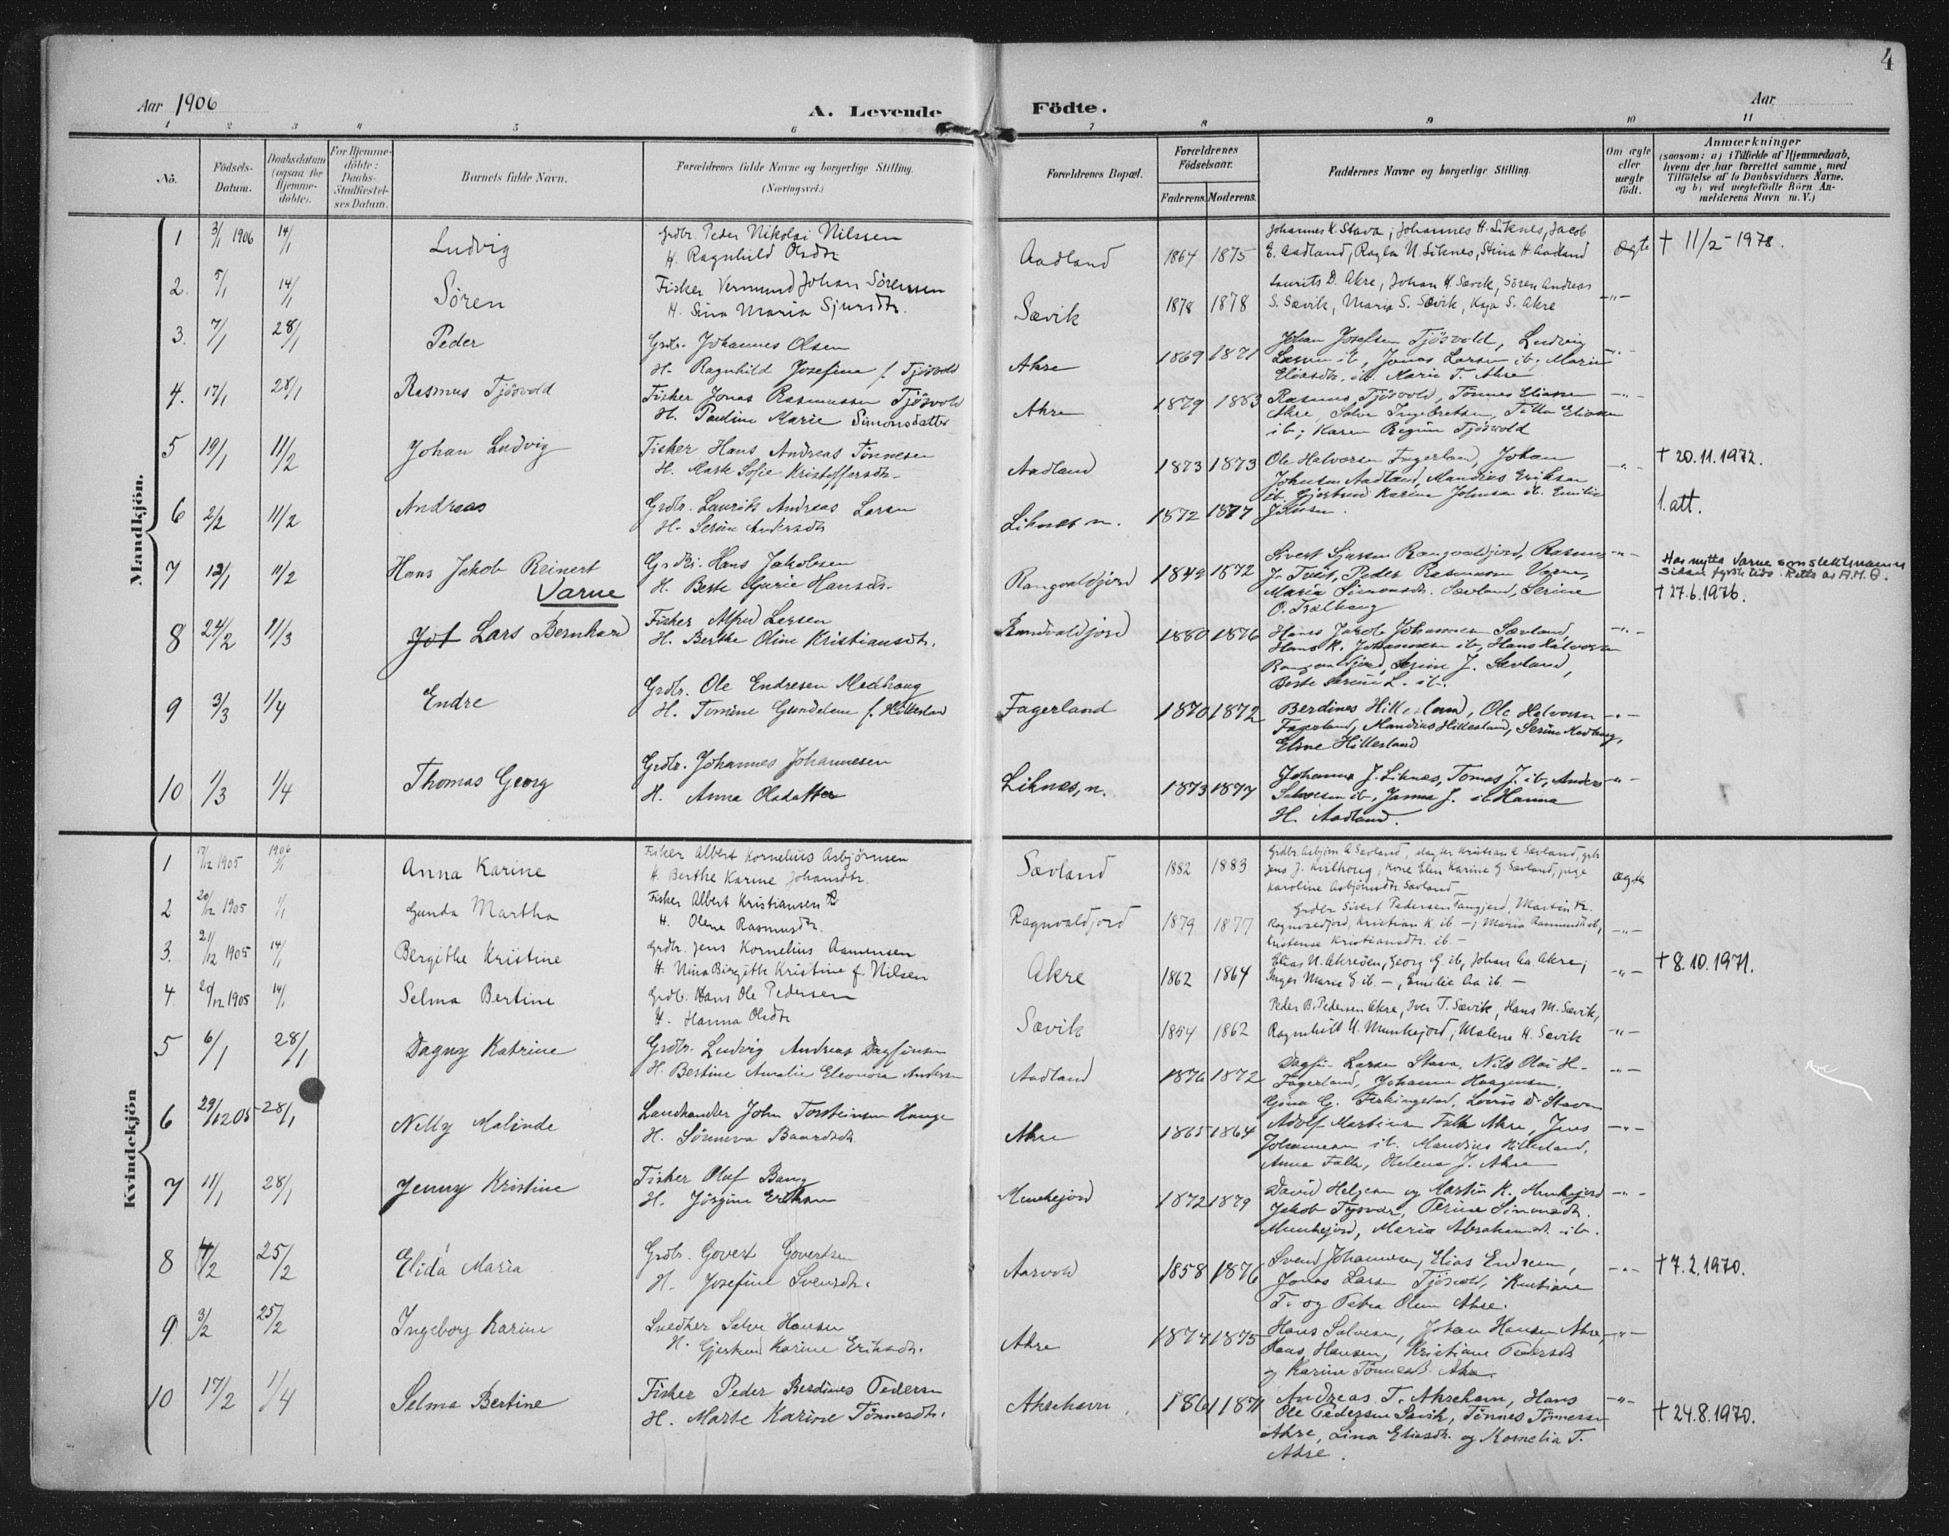 4
Aar 1906
A. Levende
Födte.
Aar
1 2 3 4 5 6 7 8 9 10 11
No.
Födsels-
Datum.
Daabsdatum
(ogsaa for
Hjemme-
döbte).
For Hjemme-
döbte:
Daabs-
Stadfæstel-
ses Datum.
Barnets fulde Navn.
Forældrenes fulde Navne og borgerlige Stilling.
(Næringsvei.)
Forældrenes Bopæl.
Forældrenes
Födselsaar.
Faderens. Moderens.
Faddernes Navne og borgerlige Stilling.
Om ægte
eller
uægte
født.
Anmærkninger
(saasom: a) i Tilfælde af Hjemmedaab,
hvem der har forrettet samme, med
Tilföielse af to Daabsvidners Navne,
og b) ved uægtefödte Börn An-
melderens Navn m. V.)
Mandkjön.
1 3/1 1906 14/1 Ludvig
Grdbr. Peder Nikolai Nilssen
H. Ragnhild Olsdtr
Aadland 1864 1875
Johannes K. Stava, Johannes H. Liknes, Jacob
E. Aadland, Ragla N. Liknes, Stina H. Aadland
Ægte † 11/2-1978.
2. 5/1 14/1 Søren
Fisker Vermund Johan Sørensen
H. Sina Maria Sjursdtr.
Sævik 1878 1878
Laurits D. Akre, Johan H. Sævik, Søren Andreas
S. Sævik, Maria S. Sævik, Kaja S. Akre
-"-
3. 7/1 28/1 Peder
Grdbr. Johannes Olsen
H. Ragnhild Josefina f. Tjösvold
Akre 1869 1871
Johan Josefsen Tjösvold, Ludvig
Larsen ib, Jonas Larsen ib, Marie
Eliasdtr. ib. Marie T. Akre
4. 17/1 28/1 Rasmus Tjösvold
Fisker Jonas Rasmussen Tjösvold
H. Pauline Marie Simonsdatter
Akre 1879 1883
Rasmus Tjösvold, Tönnes Eliassen
Akre, Salve Ingebretsen,
ib; Karen Regine Tjösvold
-"-
5 19/1 11/2 Johan Ludvig
Fisker Hans Andreas Tønnesen
H. Marte Sofie Kristoffersdtr.
Aadland 1873 1873
Ole Halvorsen Fagerland, Johan
Johnsen Aadland, Mandius Eriksen
ib. Gjertrud Karine Johnsen ib. Emilie
Johnsen.
-"- † 20.11.1972.
6 2/2 11/2 Andreas
Grdbr. Laurits Andreas Larsen
H. Serine Andersdtr
Liknes n. 1872 1877
1. att.
7 12/1 11/2 Hans Jakob Reinert
Varne
Grdbr. Hans Jakobsen
H. Berte Gurie Hansdtr.
Rangvaldjord 1849 1872
Sivert Sjursen Rangvaldjord, Rasmus
J. Tveit, Peder Rasmussen
Maria Simonsdtr. Sævland, Serine
-"-
Har nytta Varne som slektsnamn
† 27.6.1976.
8 24/2 11/3 Lars Bernhard
Fisker Alfred Larsen
H. Berthe Oline Kristiansdtr.
Randvaldjord 1880 1876
Hans Jacob Johannesen Sævland,
Hans K. Johannesen ib, Hans Halvorsen
Rangvaldjord, Serine J. Sævland,
Berte Serine L. ib.
-"-
9 3/3 1/4 Endre
Grdbr. Ole Endresen Medhaug
H. Tomine Gundeline f. Hillesland
Fagerland 1870 1872
Berdines Hillesland, Ole Halvorsen
Fagerland, Mandius Hillesland, Serine Medhaug,
Eline Hillesland
-"-
10 1/3 1/4 Thomas Georg
Grdbr. Johannes Johannesen
H. Anna Olsdatter
Liknes, n. 1873 1877
Johannes J. Liknes, Tomas J. ib, Anders
Salvesen ib, Janna J. ib Hanna
H. Aadland.
-"-
Kvindekjön
1 17/12 1905 1906 1/1 Anna Karine
Fisker Albert Kornelius Asbjørnsen
H. Berthe Karine Johansdtr.
Sævland 1882 1883
Grdbr. Asbjørn A. Sævland, Kristian E. Sævland,
Jens J. Kvilhaug, Kone Elen Karine G. Sævland, pige
Karoline Asbjørnsdtr. Sævland
Ægte
2 20/12 1905 1/1 Gunda Martha
Fisker Albert Kristiansen R
H. Olene Rasmusdtr.
Ragnvaldjord 1879 1877
Grdbr Sivert Pedersen Tangjerd, Martin K.
Ragnvaldjord, Kristian K. ib -; Maria Aamundsdtr. ib,
Kristense Kristiansdtr. ib. -
-"-
3. 21/12 1905 14/1 Bergithe Kristine
Grdbr. Jens Kornelius Aamunsen
H. Nina Birgithe Kristine f. Nilsen
Akre 1862 1864
Elias N. Akreøen, Georg G. ib, Johan Aa. Akre;
Inger Marie G. ib. -, Emilie Aa. ib -
-"- † 8.10.1971.
4. 20/12 1905 14/1 Selma Bertine
Grdbr. Hans Ole Pedersen
H. Hanna Olsdtr
Sævik 1854 1862
Peder B. Pedersen Akre, Iver T. Sævik, Hans M. Sævik,
Ragnhild U. Munkejord, Malene H. Sævik
-"-
5 6/1 28/1 Dagny Katrine
Grdbr. Ludvig Andreas Dagfinsen
H. Bertine Amalie Eleonora Andersen
Aadland 1876 1872
Larsen Stava, Nils Olai H.
Fagerland, Johanne Haagensen,
Gina G. Ferkingstad, Lovise D. Stava
-"-
6 29/12 05 28/1 Nelly Malinde
Landhandler John Torsteinsen Hauge
H. Sønneva Baardsdtr.
Akre 1865 1864
Adolf Martinus Falk Akre, Jens
Johannesen ib. Mandius Hillesland,
Anna Falk, Helena J. Akre
-"-
7 11/1 28/1 Jenny Kristine
Fisker Oluf Bang
H. Jørgine Eriksen
Munkejord 1872 1879
David Helgesen og Martin K. Munkejord
Jakob Tysvær, Serine Simonsdtr.
Munkejord, Maria Abrahamsdtr. ib.
-"-
8 4/2 25/2 Elida Maria
Grdbr. Govert Govertsen
H. Josefine Svensdtr.
Aarvold 1858 1876
Svend Johannesen, Elias Endresen,
Jonas Larsen Tjösvold, Kristiane
T. og Petra Olsen Akre.
-"- † 7.2.1970.
9 3/2 25/2 Ingeborg Karine
Snedker Salve Hansen
H. Gjertrud Karine Eriksdtr.
Akre 1874 1875
Hans Salvesen, Johan Hansen Akre,
Hans Hansen, Kristiane Pedersdtr
og Karine Tønnesdtr. Akre.
-"-
10 17/2 1/4 Selma Bertine
Fisker Peder Berdines Pedersen
H. Marte Karine Tønnesdtr.
Akrehavn. 1871
Andreas T. Akrehavn, Hans
Ole Pedersen Sævik, Tønnes Tønnesen
Akre, Lina Eliasdtr. og Kornelia T.
Akre.
-"- † 24.8.1970.